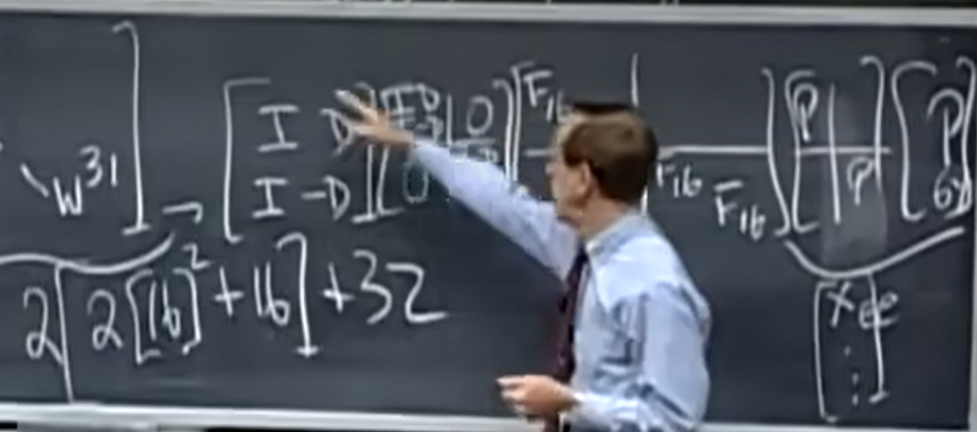 W^31
I D
I -D
I D
I -D
0
0
F16
F16
F16
P
P
P
64
2[2[16]^2+16]+32
x ee
⋮